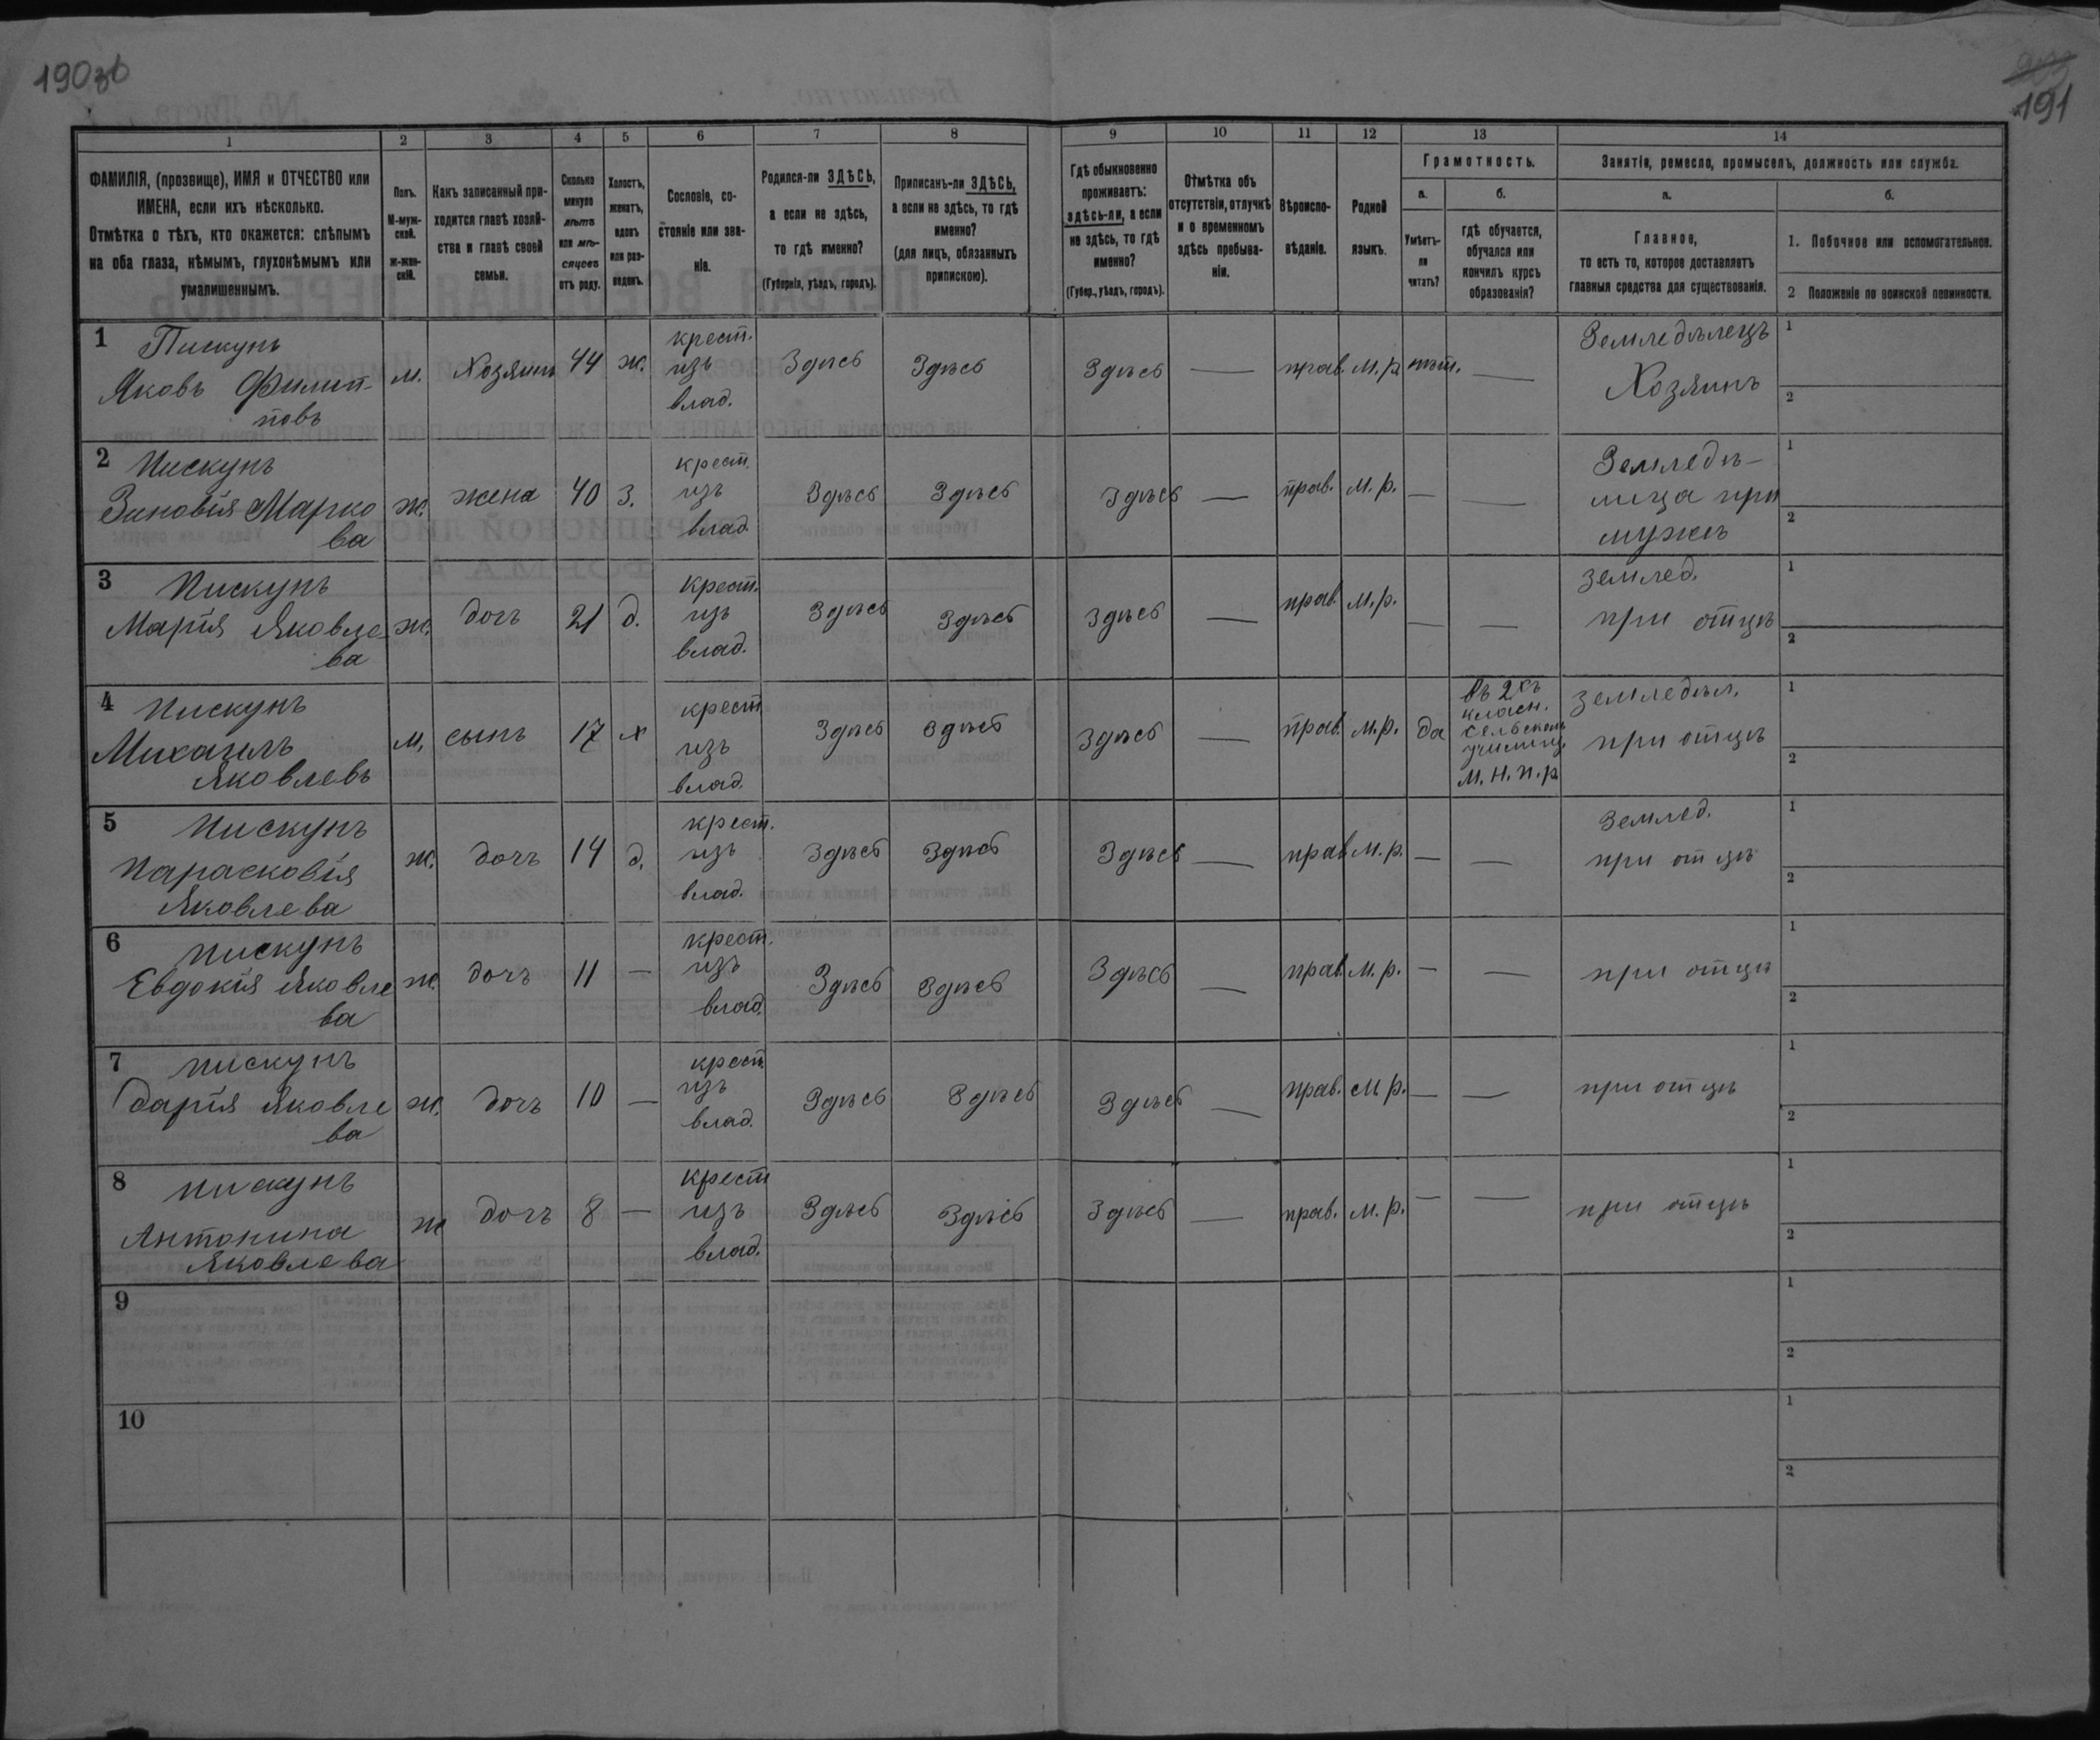 190об
903
191
1
2
3
4
5
6
7
8
9
10
11
12
13
14
ФАМИЛІЯ, (прозвище), ИМЯ и ОТЧЕСТВО или
ИМЕНА, если ихъ нѣсколько.
Отмѣтка о тѣхъ, кто окажется: слѣпымъ
на оба глаза, нѣмымъ, глухонѣмымъ или
умалишеннымъ.
Полъ.
М-муж-
ской.
ж-жен-
скій.
Какъ записанный при-
ходится главѣ хозяй-
ства и главѣ своей
семьи.
Сколько
минуло
лѣтъ
или мѣ-
сяцевъ
отъ роду.
Холостъ,
женатъ,
вдовъ
или раз-
веденъ.
Сословіе, со-
стояніе или зва-
ніе.
Родился-ли ЗДѢСЬ,
а если не здѣсь,
то гдѣ именно?
(Губернія, уѣздъ, городъ).
Приписанъ-ли ЗДѢСЬ,
а если не здѣсь, то гдѣ
именно?
(для лицъ, обязанныхъ
припискою).
Гдѣ обыкновенно
проживаетъ:
здѣсь-ли, а если
не здѣсь, то гдѣ
именно?
(Губер., уѣздъ, городъ).
Отмѣтка объ
отсутствіи, отлучкѣ
и о временномъ
здѣсь пребыва-
ніи.
Вѣроиспо-
вѣданіе.
Родной
языкъ.
Грамотность.
а.
Умѣетъ-
ли
читать?
б.
гдѣ обучается,
обучался или
кончилъ курсъ
образованія?
Занятіе, ремесло, промыселъ, должность или служба.
а.
Главное,
то есть то, которое доставляетъ
главныя средства для существованія.
б.
1. Побочное или вспомогательное.
2 Положеніе по воинской повинности.
1 Пискунъ
Яковъ Филип-
повъ
м.
Хозяинъ
44
ж.
крест.
изъ
влад.
Здѣсь
Здѣсь
Здѣсь
—
прав.
м.р.
нѣт.
—
Земледѣлецъ
Хозяинъ
1
2
2 Пискунъ
Зиновія Марко
ва
ж.
жена
40
з.
крест.
изъ
влад.
Здѣсь
Здѣсь
Здѣсь
—
прав.
м.р.
—
—
Земледѣ-
лица при
мужѣ
1
2
3 Пискунъ
Марія Яковле
ва
ж.
дочь
21
д.
Крест.
изъ
влад.
Здѣсь
Здѣсь
Здѣсь
—
прав.
м.р.
—
—
землед.
при отцѣ
1
2
4 Пискунъ
Михаилъ
Яковлевъ
м.
сынъ
17
х
крест
изъ
влад.
Здѣсь
Здѣсь
Здѣсь
—
прав.
м.р.
да
въ 2хъ
класн.
сельскомъ
училищ.
М.Н.П.р.
земледѣл.
при отцѣ
1
2
5 Пискунъ
Парасковія
Яковлева
ж.
дочь
14
д.
крест.
изъ
влад.
Здѣсь
Здѣсь
Здѣсь
—
прав
м.р.
—
—
Землед.
при отцѣ
1
2
6 Пискунъ
Евдокія Яковле
ва
ж.
дочь
11
—
крест.
изъ
влад.
Здѣсь
Здѣсь
Здѣсь
—
прав.
м.р.
—
—
при отцѣ
1
2
7 Пискунъ
Дарія Яковле
ва
ж.
дочь
10
—
крест.
изъ
влад.
Здѣсь
Здѣсь
Здѣсь
—
прав.
м.р.
—
—
при отцѣ
1
2
8 Пискунъ
Антонина
Яковлева
ж
дочь
8
—
крест
изъ
влад.
Здѣсь
Здѣсь
Здѣсь
—
прав.
м.р.
—
—
при отцѣ
1
2
9
1
2
10
1
2